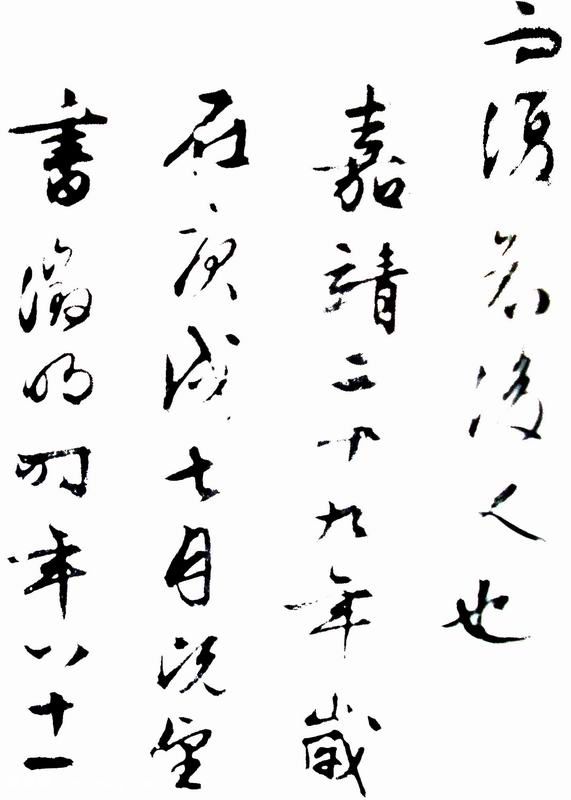 而復哀後人也
嘉靖二十九年歲
在庚戌七月既望
書徵明時年八十一